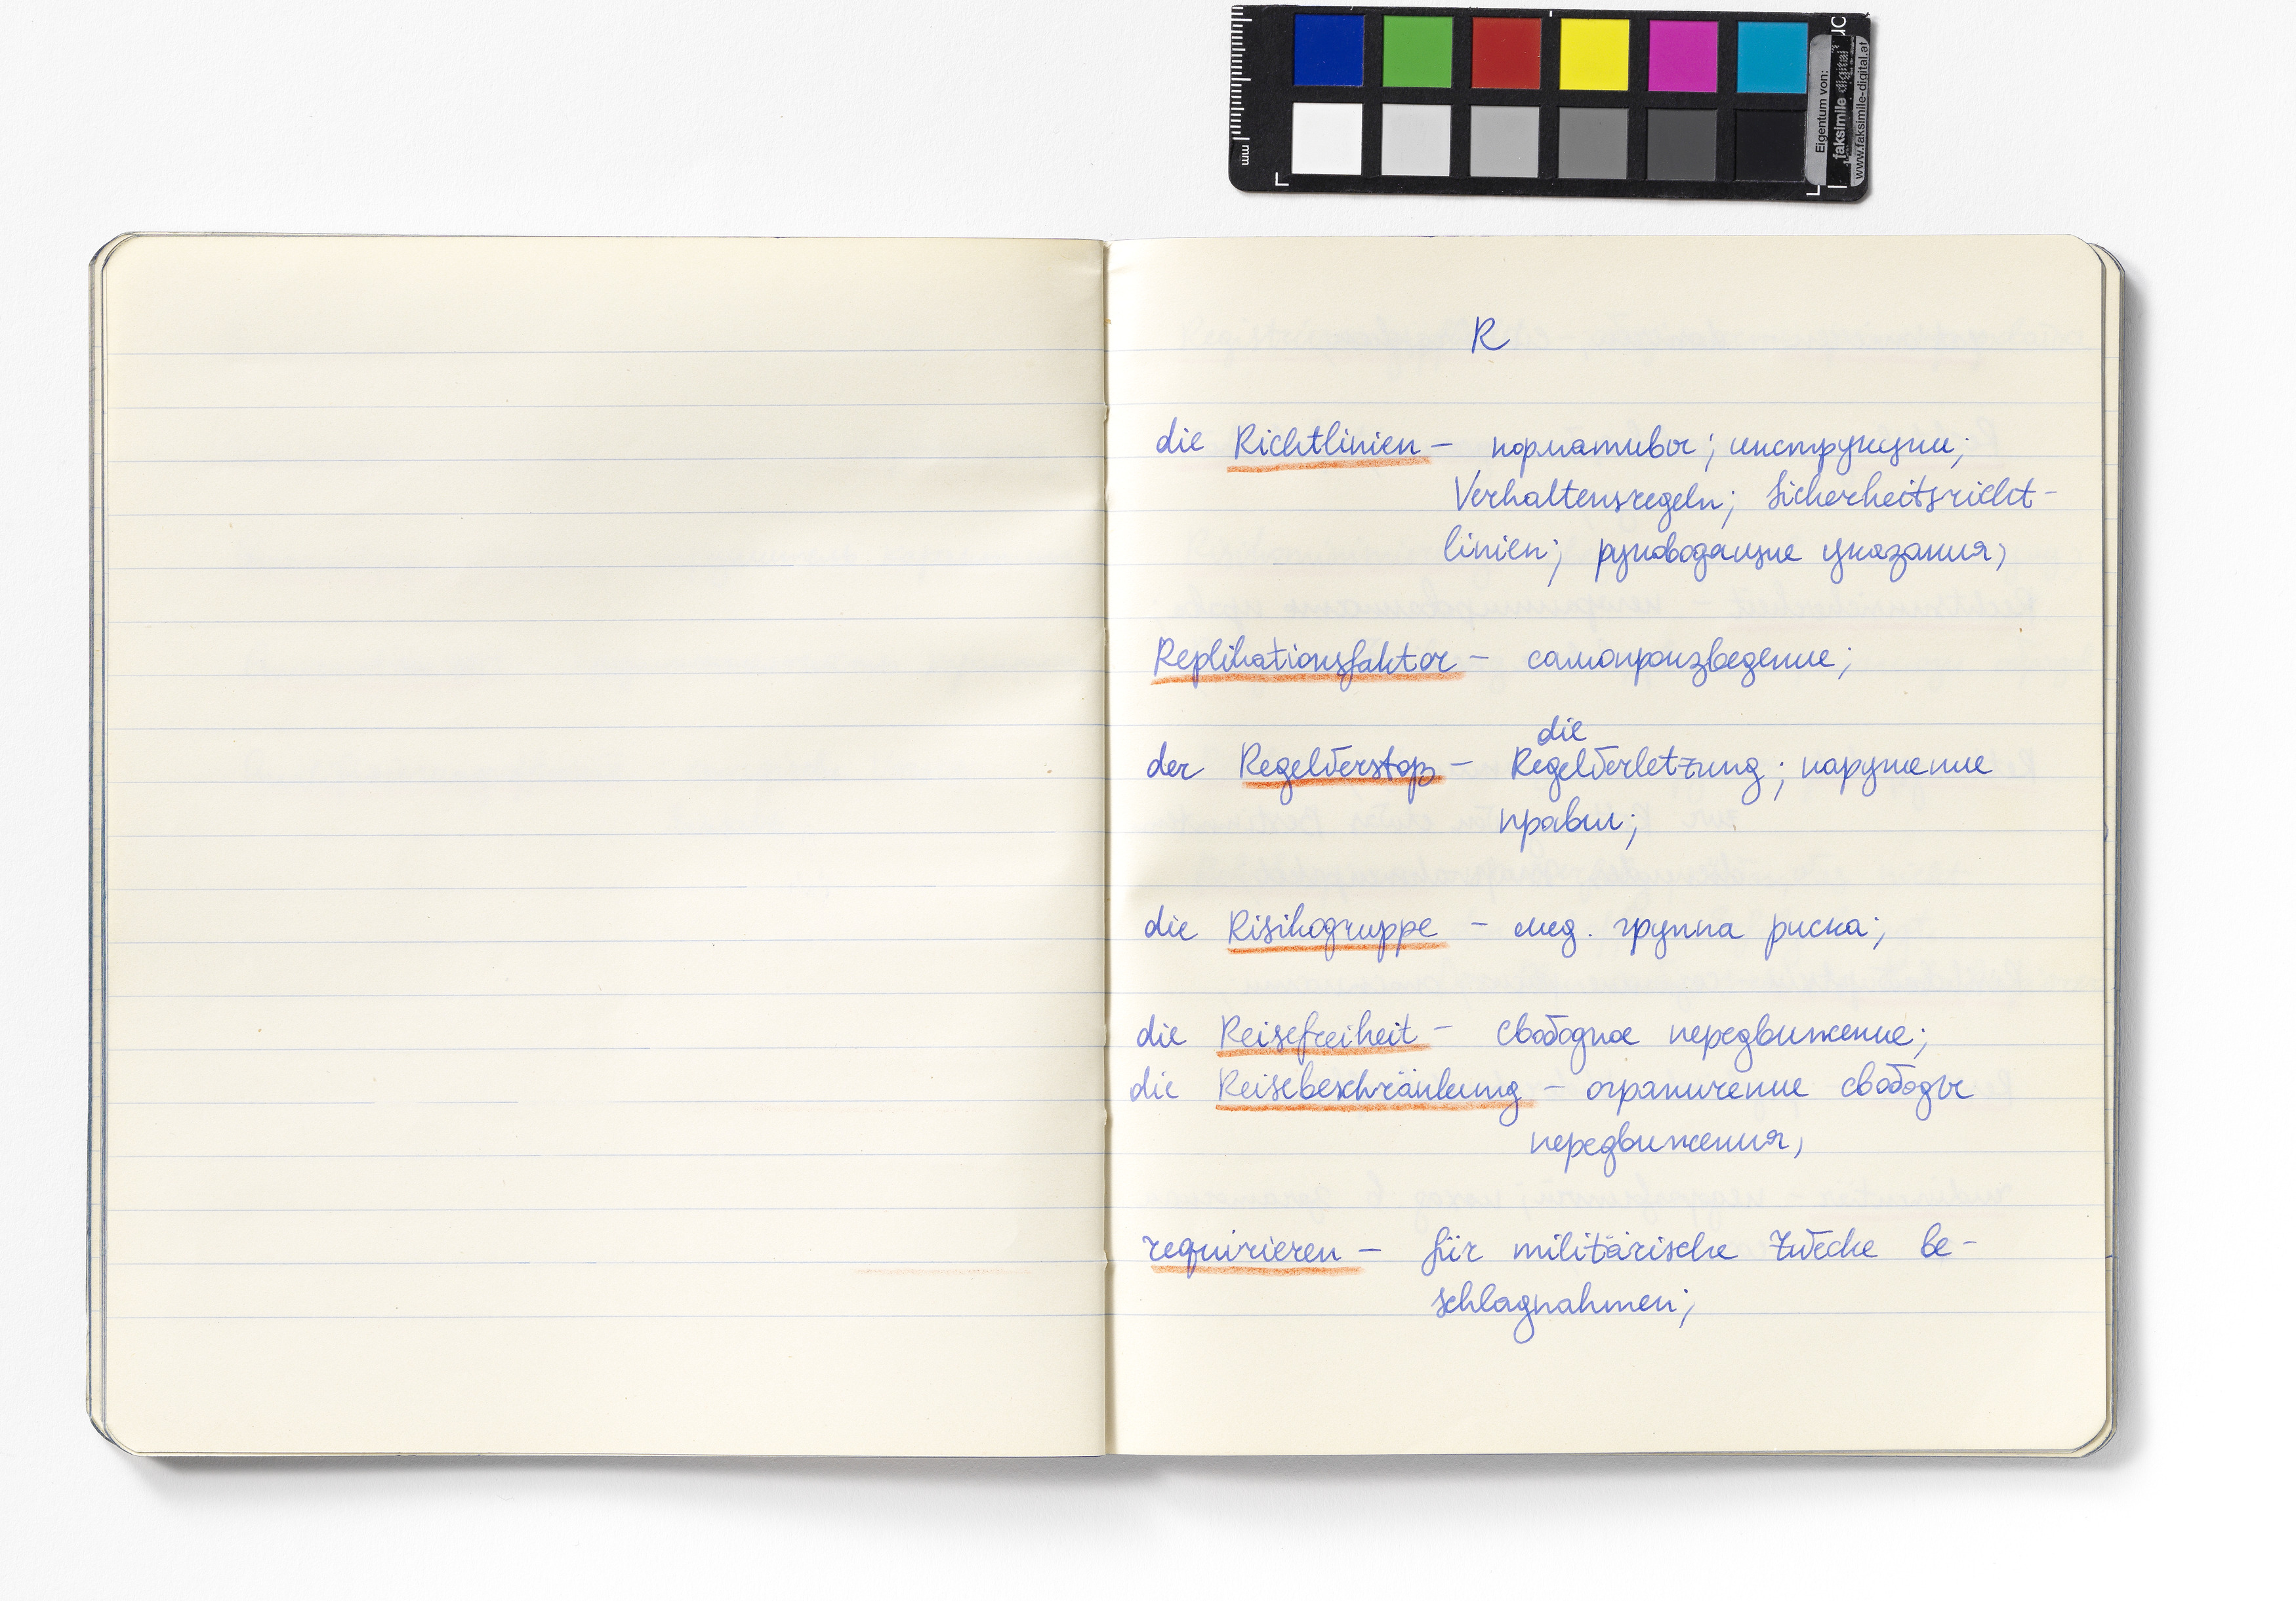 mm
Eigentum von:
faksimile digital
www.faksimile-digital.at
R
die Richtlinien – нормативы; инструкции;
Verhaltensregeln; Sicherheitsricht-
linien; руководящие указания;
Replikationsfaktor – самопроизведение;
die
der Regelverstoß – Regelverletzung; нарушение
правил;
die Risikogruppe – мед. группа риска;
die Reisefreiheit – свободное передвижение;
die Reisebeschränkung – ограничение свободы
передвижения;
requirieren – für militärische Zwecke be-
schlagnahmen;